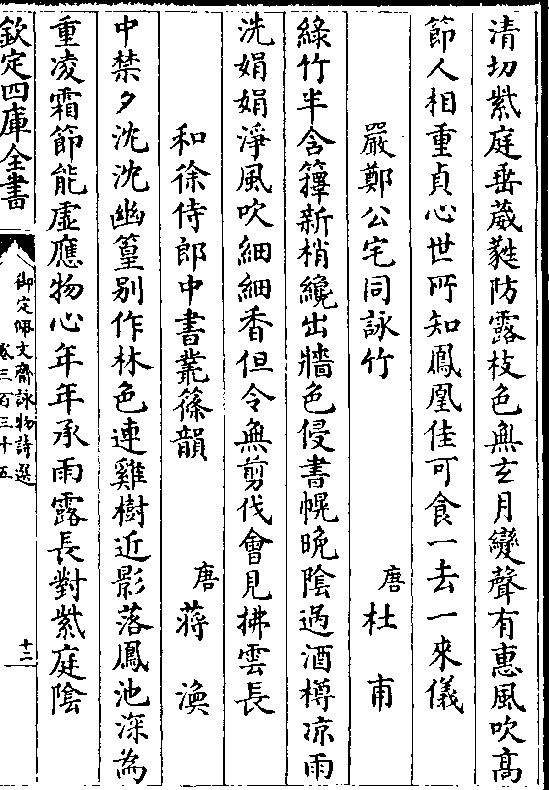 清切紫庭垂葳蕤防露枝色無玄月變聲有惠風吹高
節人相重貞心世所知鳳凰佳可食一去一來儀
嚴鄭公宅同詠竹
唐
杜甫
綠竹半含籜新梢纔出牆色侵書幌晚陰過酒樽凉雨
洗娟娟淨風吹細細香但令無剪伐會見拂雲長
和徐侍郎中書叢篠韻
唐
蔣渙
中禁夕沈沈幽篁别作林色連雞樹近影落鳳池深為
重凌霜節能虛應物心年年承雨露長對紫庭陰
欽定四庫全書
御定佩文齋詠物詩選
卷三百三十五
十二